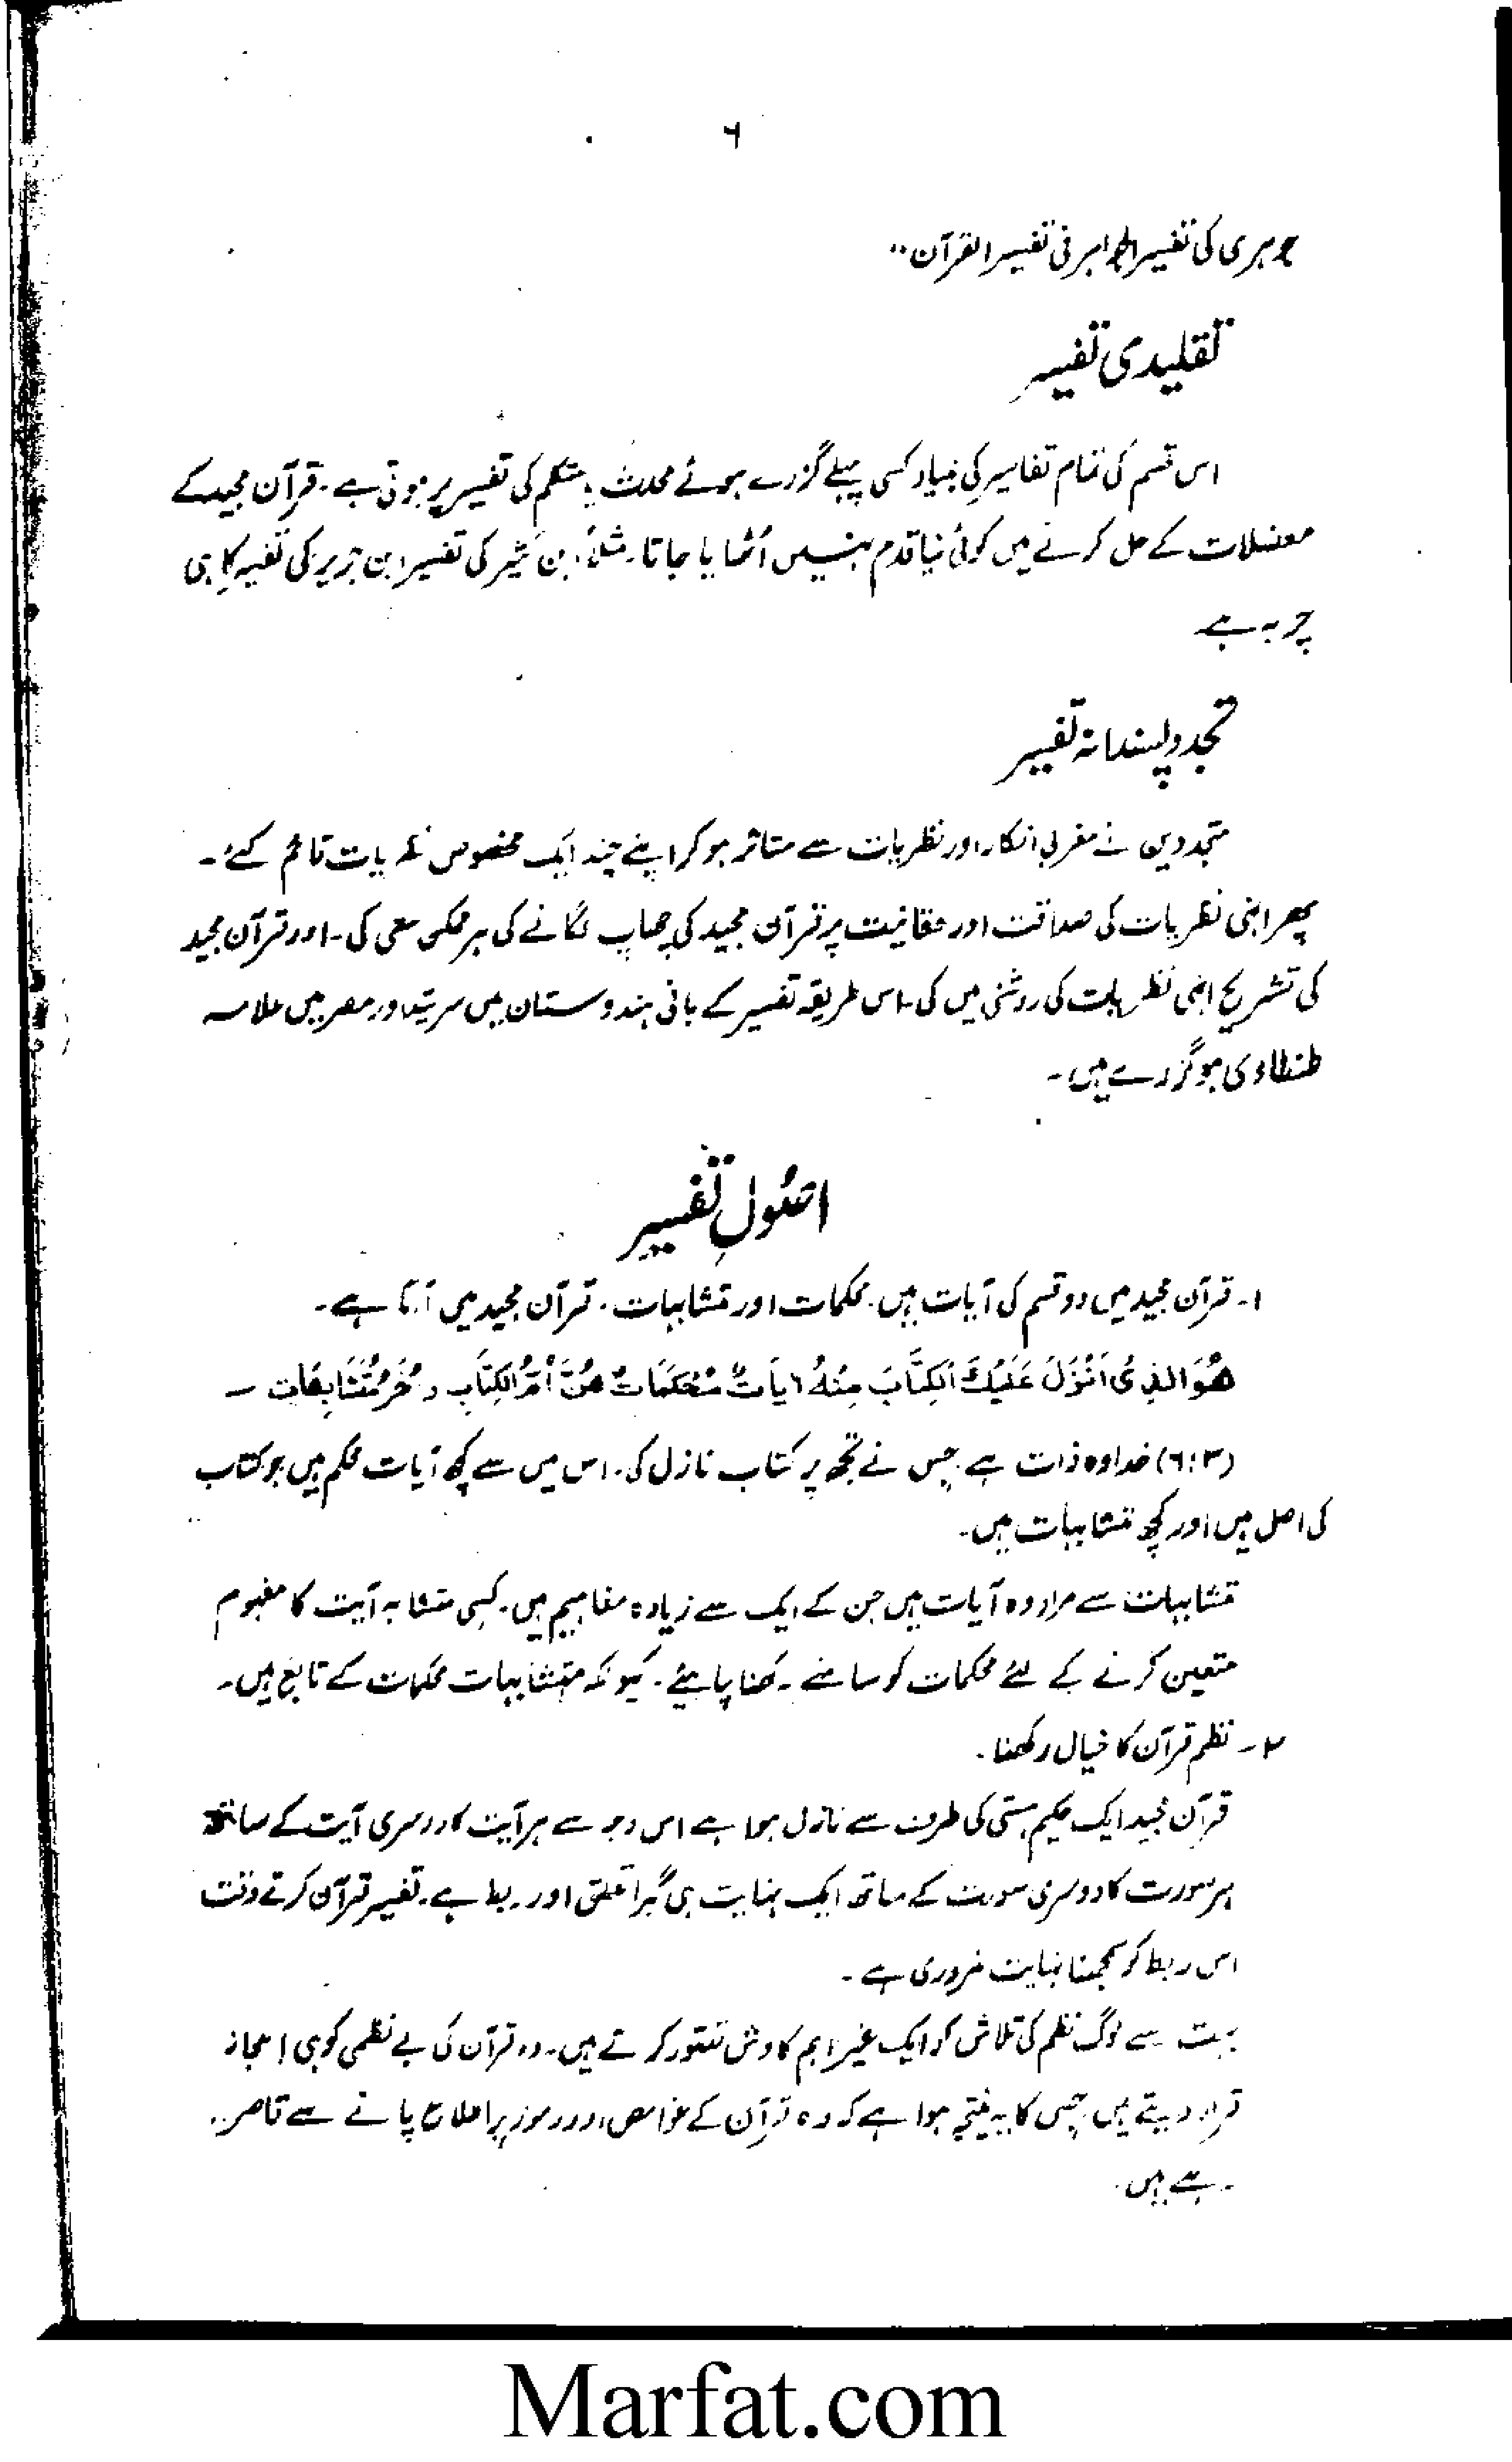 ۶
جوہری کی تفسیر الجواہر فی تفسیر القرآن"
تقلیدی تفسیر
اس قسم کی تمام تفاسیر کی بنیاد کسی پہلے گزرے ہوئے محدث یا متکلم کی تفسیر پر ہوتی ہے۔ قرآن مجید کے
معضلات کے حل کرنے میں کوئی نیا قدم نہیں اُٹھایا جاتا۔ مثلاً ابن کثیر کی تفسیر ابن جریر کی تفسیر کا ہی
چربہ ہے
تجدد پسندانہ تفسیر
متجددین نے مغربی افکار اور نظریات سے متاثر ہو کر اپنے چند ایک مخصوص نظریات قائم کئے۔
پھر انہی نظریات کی صداقت اور حقانیت پر قرآن مجید کی چھاپ لگانے کی ہر ممکن سعی کی۔ اور قرآن مجید
کی تشریح انہی نظریات کی روشنی میں کی۔ اس طریقہ تفسیر کے بانی ہندوستان میں سرسید اور مصر میں علامہ
طنطاوی ہو گزرے ہیں۔
اصُولِ تفسیر
۱۔ قرآن مجید میں دو قسم کی آیات ہیں۔ محکمات اور متشابہات۔ قرآن مجید میں آتا ہے۔
هُوَ الَّذِىْ اَنْزَلَ عَلَيْكَ الْكِتَابَ مِنْهُ اٰيَاتٌ مُّحْكَمَاتٌ هُنَّ اُمُّ الْكِتَابِ وَاُخَرُ مُتَشَابِهَات ۔
(۶:۳) خدا وہ ذات ہے جس نے تجھ پر کتاب نازل کی۔ اس میں سے کچھ آیات محکم ہیں جو کتاب
کی اصل ہیں اور کچھ متشابہات ہیں۔
متشابہات سے مراد وہ آیات ہیں جن کے ایک سے زیادہ مفاہیم ہیں۔ کسی متشابہ آیت کا مفہوم
متعین کرنے کے لئے محکمات کو سامنے رکھنا چاہیئے۔ کیونکہ متشابہات محکمات کے تابع ہیں۔
۲۔ نظم قرآن کا خیال رکھنا۔
قرآن مجید ایک حکیم ہستی کی طرف سے نازل ہوا ہے اس وجہ سے ہر آیت کا دوسری آیت کے ساتھ
ہر سورت کا دوسری سورت کے ساتھ ایک نہایت ہی گہرا تعلق اور ربط ہے۔ تفسیر قرآن کرتے وقت
اس ربط کو سمجھنا نہایت ضروری ہے۔
بہت سے لوگ نظم کی تلاش کو ایک غیر اہم کاوش تصور کرتے ہیں۔ وہ قرآن کی بے نظمی کو ہی اعجاز
قرار دیتے ہیں جس کا یہ نتیجہ ہوا ہے کہ وہ قرآن کے غوامض اور رموز پر اطلاع پانے سے قاصر
رہے ہیں۔
Marfat.com